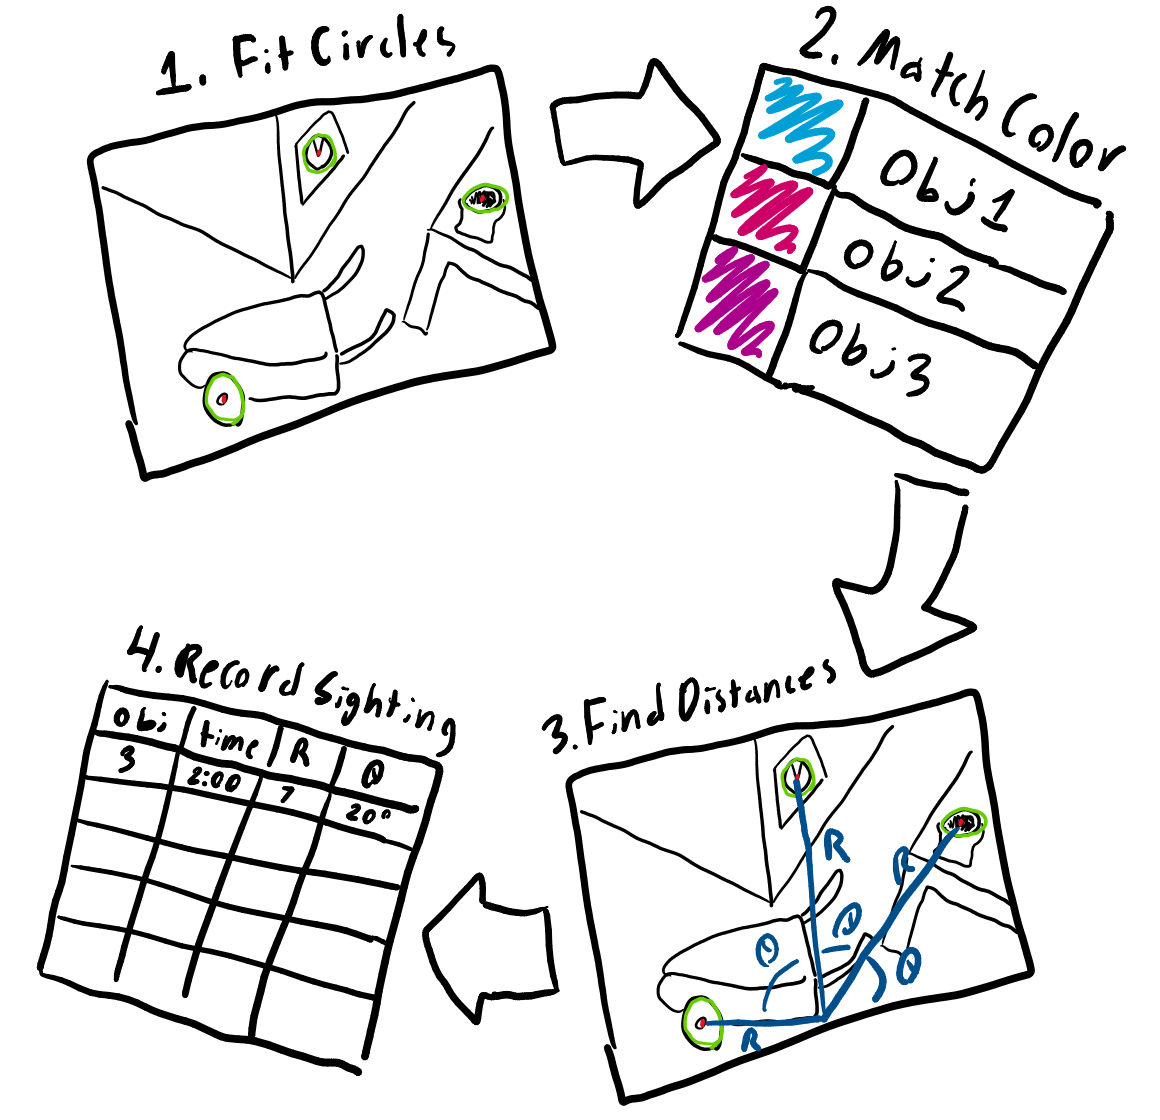 1. Fit Circles
2. Match Color
Obj1
Obj2
Obj3
3. Find Distances
R
R
θ
θ
θ
R
4. Record Sighting
obj time R θ
3 2:00 7 20°